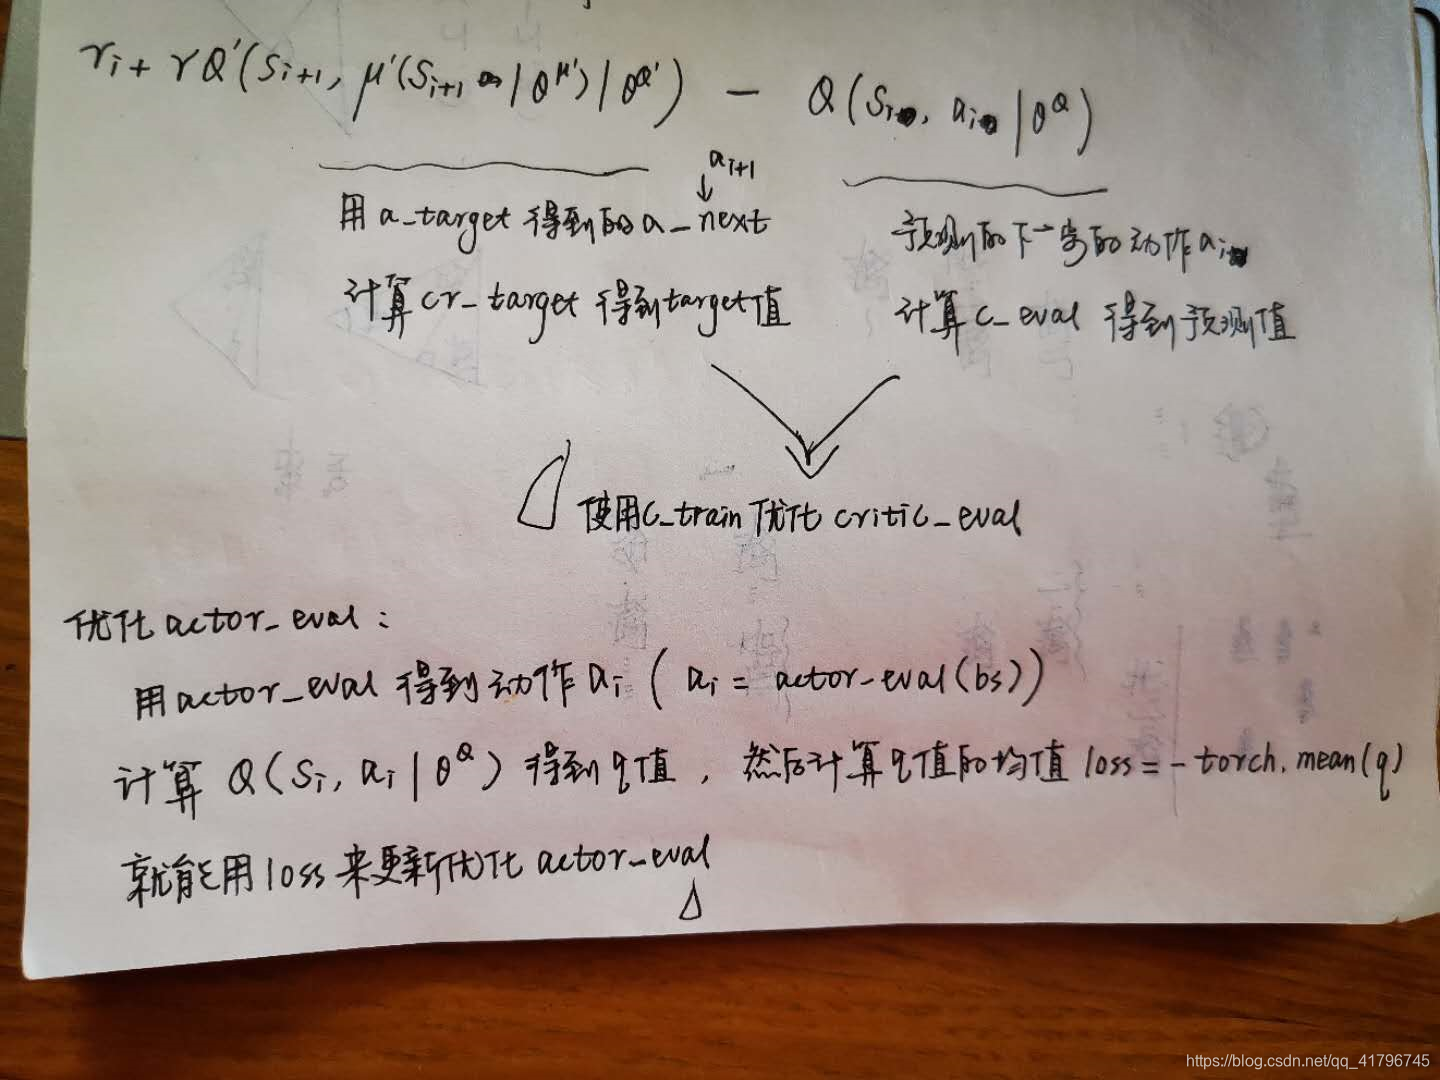 ri + γQ'(Si+1, μ'(Si+1 | θ^μ') | θ^Q') − Q(Si, ai | θ^Q)
ai+1
用a_target得到的a_next
计算cr_target得到target值
预测的下一步的动作ai
计算c_eval 得到预测值
使用c_train优化critic_eval
优化actor_eval:
用actor_eval得到动作ai (ai = actor-eval(bs))
计算 Q(Si, ai | θ^Q) 得到q值, 然后计算q值的均值 loss = - torch.mean(q)
就能用loss来更新优化actor_eval
https://blog.csdn.net/qq_41796745